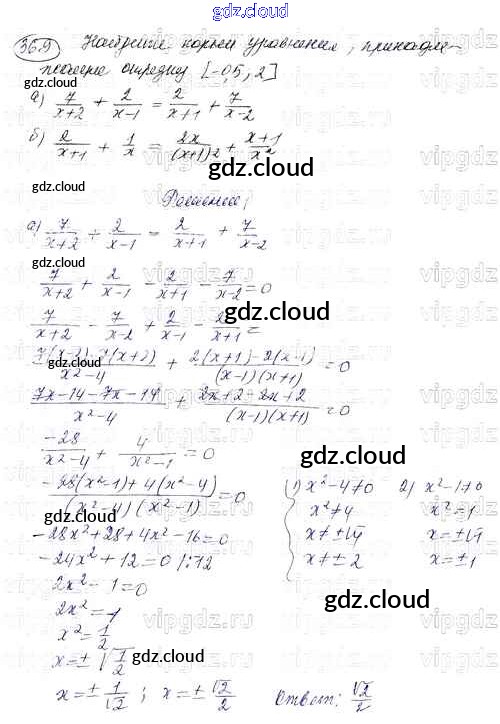 gdz.cloud
36.9 Найдите корни уравнения, принадле-
жащие отрезку [-0,5, 2]
gdz.cloud
а) 7/(x+2) + 2/(x-1) = 2/(x+1) + 7/(x-2)
gdz.cloud
б) 2/(x+1) + 1/x = 2x/(x+1)2 + (x+1)/x²
gdz.cloud
Решение:
а) 7/(x+2) + 2/(x-1) = 2/(x+1) + 7/(x-2)
gdz.cloud
7/(x+2) + 2/(x-1) - 2/(x+1) - 7/(x-2) = 0
gdz.cloud
7/(x+2) - 7/(x-2) + 2/(x-1) - 2/(x+1) =
(7(x-2)-7(x+2))/(x²-4) + (2(x+1)-2(x-1))/((x-1)(x+1)) = 0
gdz.cloud
(7x-14-7x-14)/(x²-4) + (2x+2-2x+2)/((x-1)(x+1)) = 0
-28/(x²-4) + 4/(x²-1) = 0
gdz.cloud
(-28(x²-1)+4(x²-4))/((x²-4)(x²-1)) = 0
1) x²-4≠0 2) x²-1≠0
-28x²+28+4x²-16=0
x²≠4 x²=1
-24x²+12=0 /:12
x≠±√4 x=±√1
2x²-1=0
x≠±2 x=±1
2x²=1
gdz.cloud
x²=1/2
x=±√1/2
gdz.cloud
x=±1/√2; x=±√2/2 Ответ: √2/2
gdz.cloud
vipgdz.ru